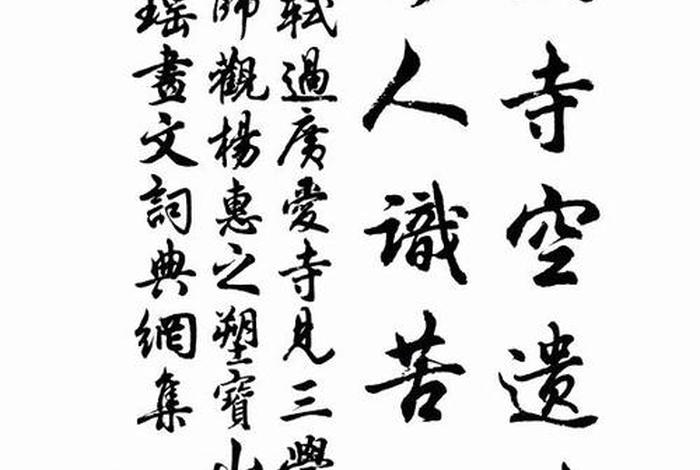 寺空遺
人識苦
軾過廣愛寺見三學
師觀楊惠之塑寶山
瑤畫文詞典網集